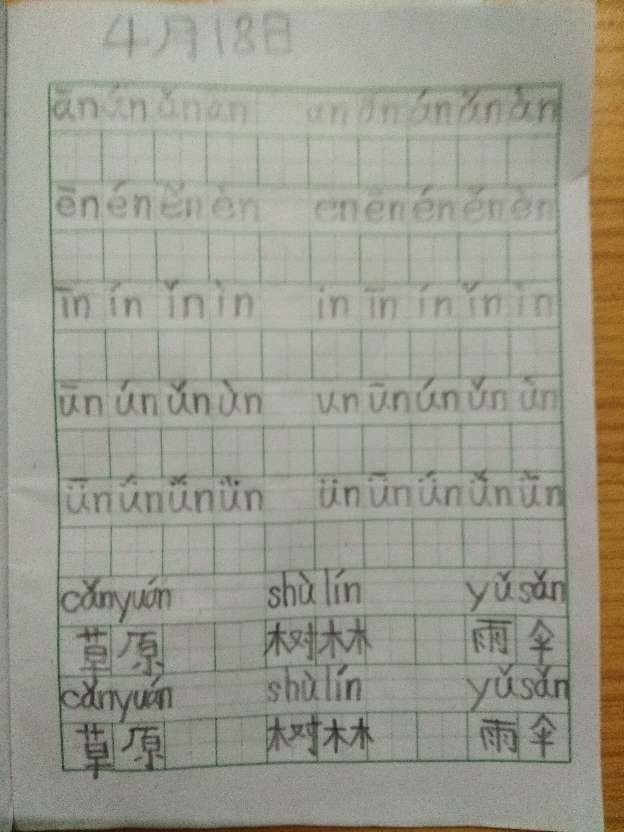 4月18日
ān án ǎn àn an ān án ǎn àn
ēn én ěn èn en ēn én ěn èn
īn ín ǐn ìn in īn ín ǐn ìn
ūn ún ǔn ùn un ūn ún ǔn ùn
ǖn ǘn ǚn ǜn ün ǖn ǘn ǚn ǜn
cǎnyuán shùlín yǔsǎn
草原 树林 雨伞
cǎnyuán shùlín yǔsǎn
草原 树林 雨伞